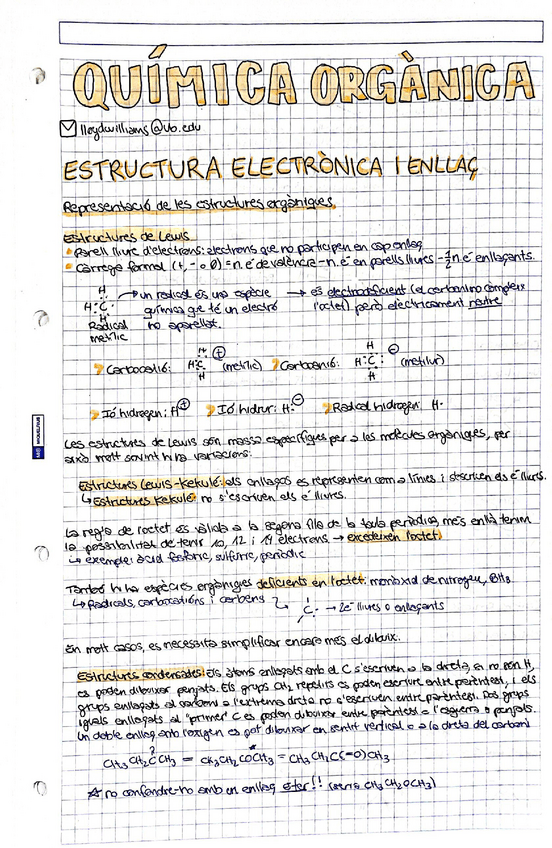 QUÍMICA ORGÀNICA
lloydwilliams@ub.edu
ESTRUCTURA ELECTRÒNICA I ENLLAÇ
Representació de les estructures orgàniques
Estructures de Lewis
Parell lliure d'electrons: electrons que no participen en cap enllaç
Càrrega formal (+, - o 0) = n. é de valència - n. é en parells lliures - ½ n. é enllaçants.
H
H:C· → un radical és una espècie → és electrodeficient (el carboni no compleix
H química que té un electró l'octet) però elèctricament neutre
Radical no aparellat.
metílic
? Carbocatió: H:C H H ⊕ (metílic) ? Carboanió: H:C: H H ⊖ (metilur)
? Ió hidrogen: H⊕ ? Ió hidrur: H:⊖ ? Radical hidrogen: H·
Les estructures de Lewis són massa específiques per a les molècules orgàniques, per
això molt sovint hi ha variacions:
Estructures Lewis-Kekulé: els enllaços es representen com a línies i s'escriuen els é lliures.
↳ Estructures Kekulé no s'escriuen els é lliures.
La regla de l'octet és vàlida a la segona fila de la taula periòdica, més enllà tenim
la possibilitat de tenir 10, 12 i 14 electrons → excedeixen l'octet
↳ exemple: àcid fosfòric, sulfúric, periòdic
També hi ha espècies orgàniques deficients en l'octet: monòxid de nitrogen, BH3
↳ Radicals, carbocations i carbens ↳ C: → 2é lliures o enllaçants
En molt casos, es necessita simplificar encara més el dibuix.
Estructures condensades: els àtoms enllaçats amb el C s'escriuen a la dreta, si no són H,
es poden dibuixar penjats. Els grups CH2 repetits es poden escriure entre parèntesi, i els
grups enllaçats al carboni a l'extrem dreta no s'escriuen entre parèntesi. Dos grups
iguals enllaçats al "primer" C es poden dibuixar entre parèntesi a l'esquerra o penjats.
Un doble enllaç amb l'oxigen es pot dibuixar en sentit vertical o a la dreta del carboni
O
CH3CH2CCH3 = CH3CH2COCH3 = CH3CH2C(=O)CH3
☆ no confondre-ho amb un enllaç èter!! (seria CH3CH2OCH3)
MIQUELRIUS